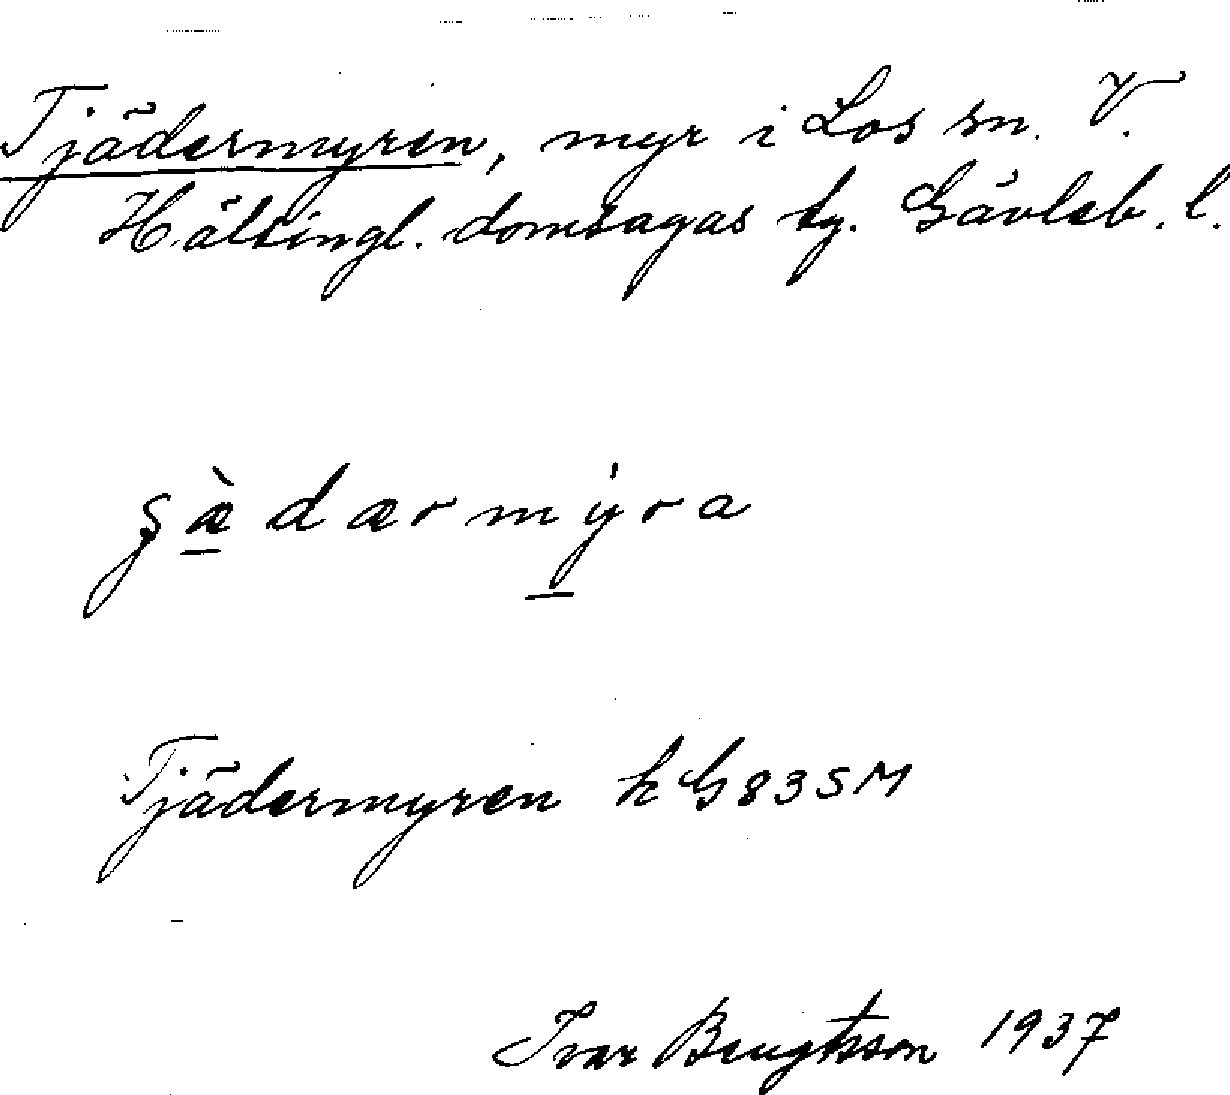 Tjädermyren, myr i Los sn. V.
Hälsingl. domsagas tg. Gävleb. l.
ʂæ̀dærmýra
Tjädermyren k G83SM
Ivar Bengtsson 1937